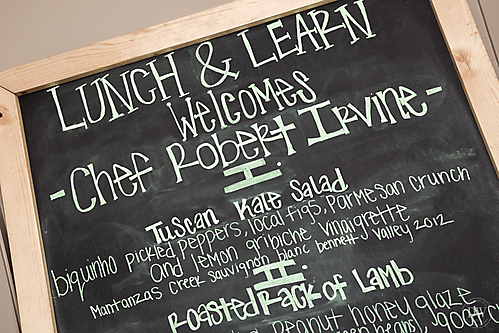 LUNCH & LEARN
Welcomes
- Chef Robert Irvine -
I.
Tuscan Kale Salad
biquinho pickled peppers, local figs, Parmesan crunch
and lemon gribiche, vinaigrette
Mantanzas Creek Sauvignon blanc bennett valley 2012
II.
Roasted Rack of Lamb
peanut honey glaze